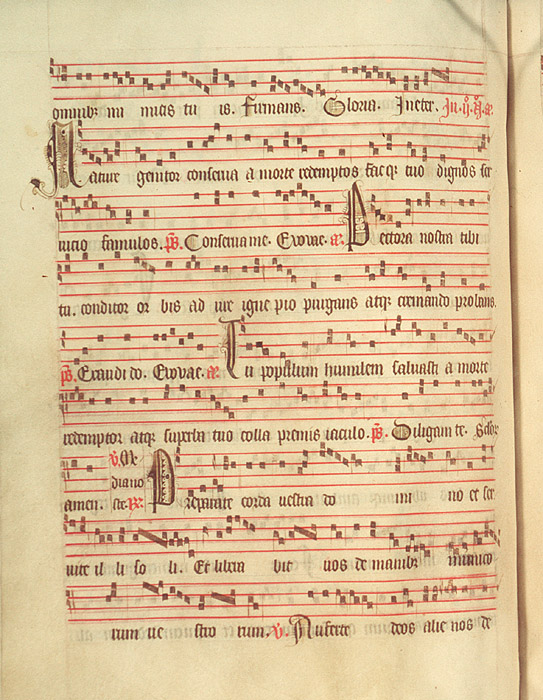 omnibꝫ ini micis tu is. Firmans. Gloria. In eter. In .ij. ꝫ. a
Nature genitor conserva a morte redemptos facqꝫ tuo dignos ser
vicio famulos. ps. Conserva me. Evovae. ae. Pectora nostra tibi
tu. conditor or bis ad ure igne pio purgans atqꝫ cremando probans.
ps. Exaudi do. Evovae. ae. Tu populum humilem salvasti a morte
redemptor atqꝫ superba tuo colla premis iaculo. ps. Diligam te. Seclor
v. Me
diano
amen. cte. R. Preparate corda vestra do mi no et ser
vite il li so li. Et libera bit vos de manibꝫ inimico
rum ve stro rum. v. Auferte deos alie nos de